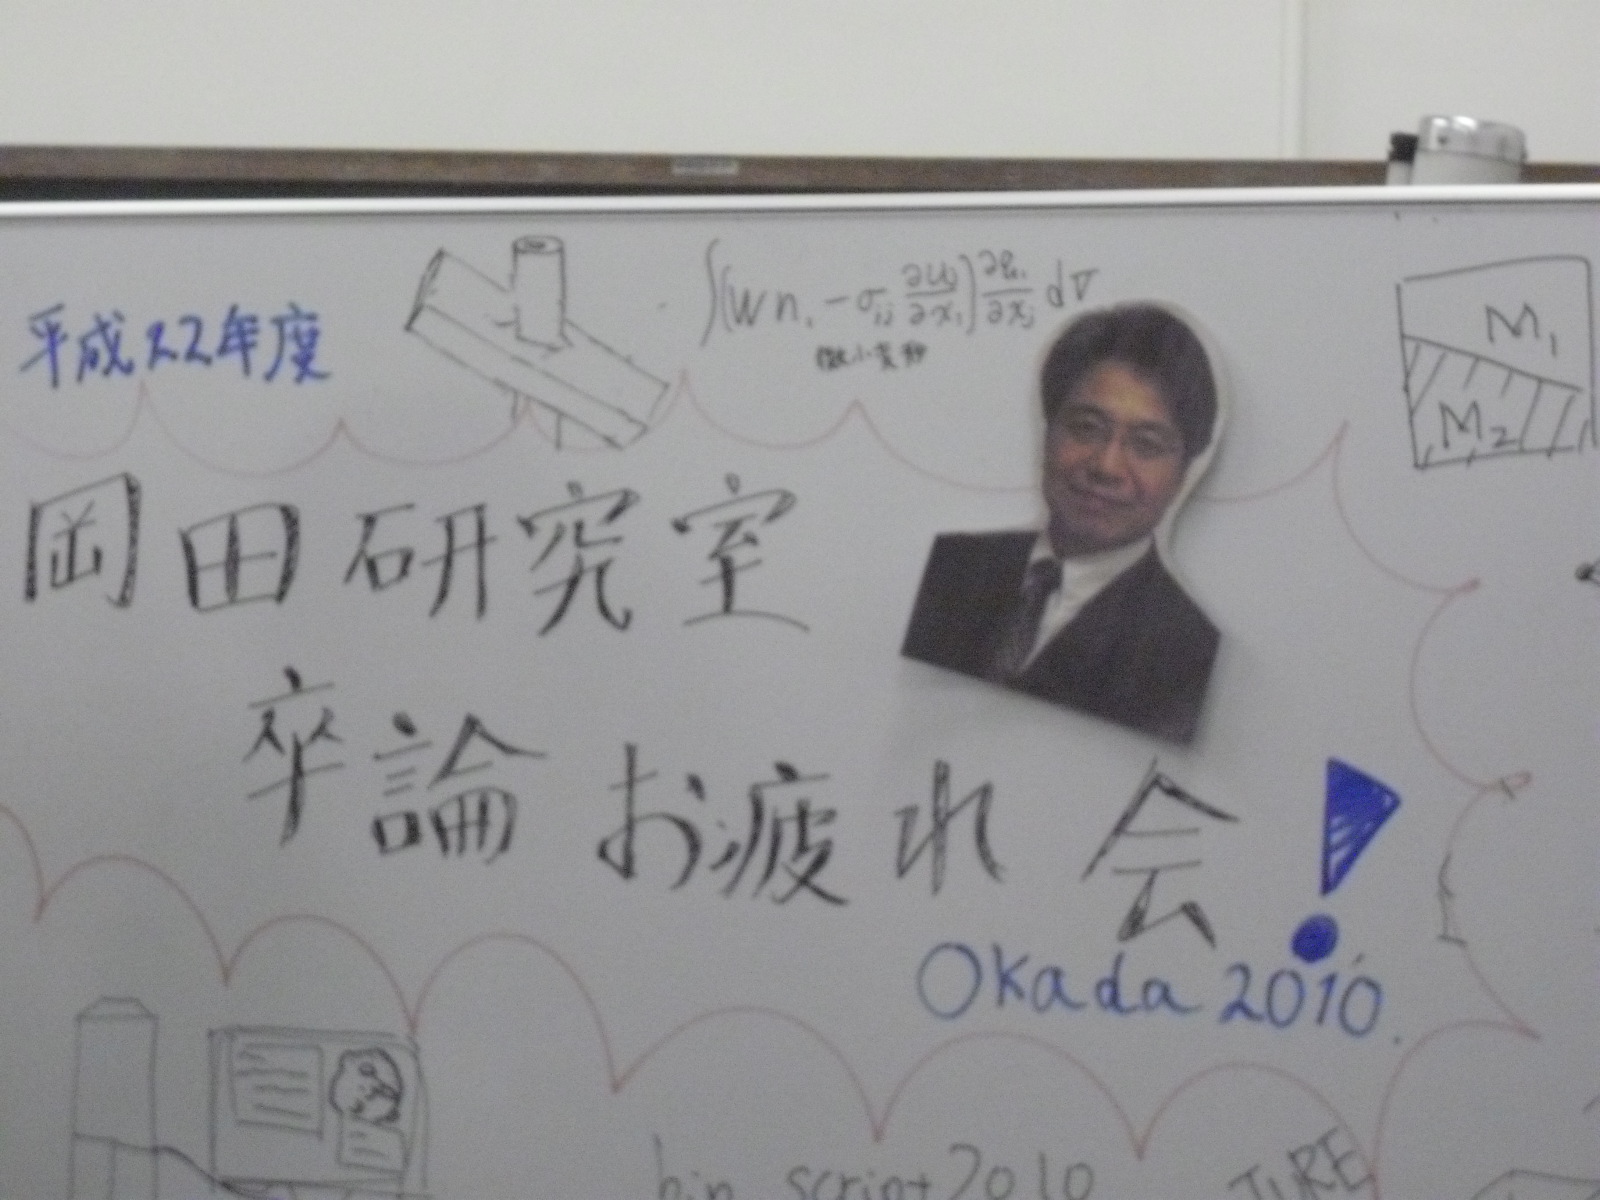 平成22年度
∫(Wn₁−σᵢⱼ ∂uⱼ/∂x₁)∂q₁/∂xⱼ dV
微小変形
M₁
M₂
岡田研究室
卒論お疲れ会!
Okada 2010.
bin script2010
TURE